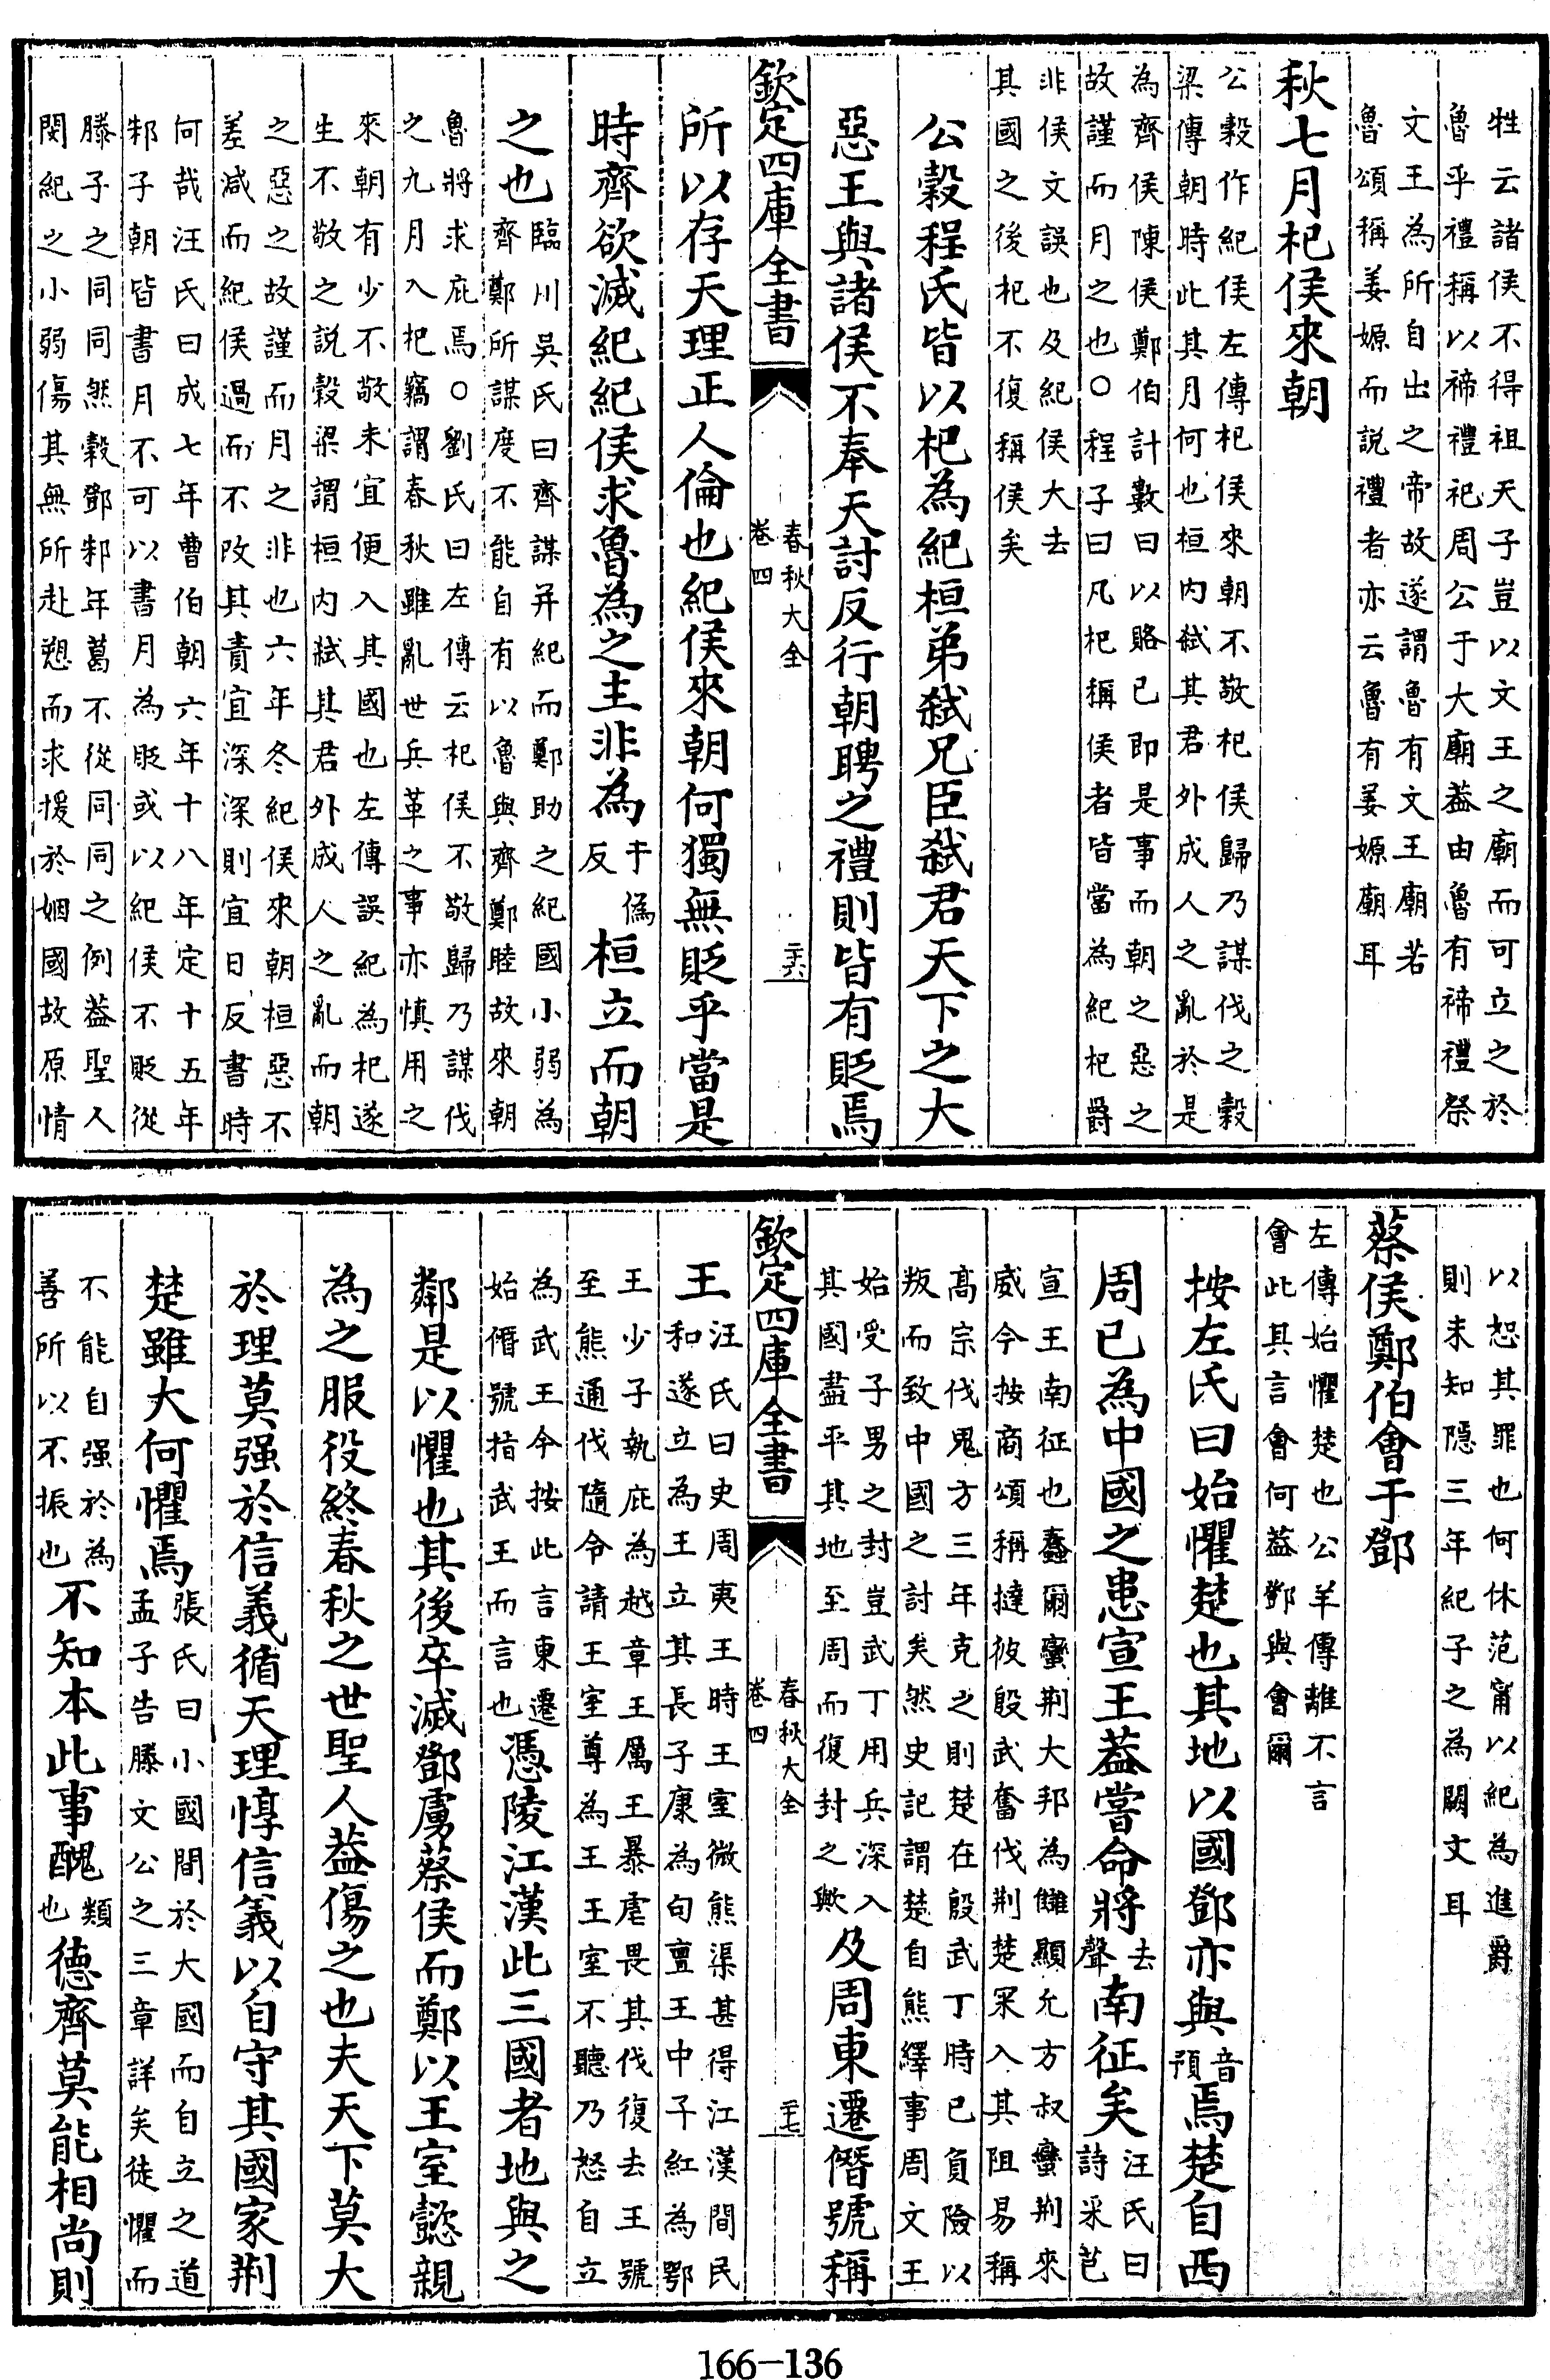 牲云諸侯不得祖天子豈以文王之廟而可立之於
魯乎禮稱以禘禮祀周公于大廟葢由魯有禘禮祭
文王為所自出之帝故遂謂魯有文王廟若
魯頌稱姜嫄而説禮者亦云魯有姜嫄廟耳
秋七月杞侯來朝
公穀作紀侯左傳杞侯來朝不敬杞侯歸乃謀伐之穀
梁傳朝時此其月何也桓内弑其君外成人之亂於是
為齊侯陳侯鄭伯計數日以賂已即是事而朝之惡之
故謹而月之也○程子曰凡杞稱侯者皆當為紀杞爵
非侯文誤也及紀侯大去
其國之後杞不復稱侯矣
公穀程氏皆以杞為紀桓弟弑兄臣弑君天下之大
惡王與諸侯不奉天討反行朝聘之禮則皆有貶焉
欽定四庫全書
春秋大全
卷四
二十六
所以存天理正人倫也紀侯來朝何獨無貶乎當是
時齊欲滅紀紀侯求魯為之主非為于偽反桓立而朝
之也
臨川吳氏曰齊謀并紀而鄭助之紀國小弱為
齊鄭所謀度不能自有以魯與齊鄭睦故來朝
魯將求庇焉○劉氏曰左傳云杞侯不敬歸乃謀伐
之九月入杞竊謂春秋雖亂世兵革之事亦慎用之
來朝有少不敬未宜便入其國也左傳誤紀為杞遂
生不敬之説穀梁謂桓内弑其君外成人之亂而朝
之惡之故謹而月之非也六年冬紀侯來朝桓惡不
差減而紀侯過而不攺其責宜深深則宜日反書時
何哉汪氏曰成七年曹伯朝六年十八年定十五年
邾子朝皆書月不可以書月為貶或以紀侯不貶從
滕子之同同然穀鄧邾年葛不從同同之例葢聖人
閔紀之小弱傷其無所赴愬而求援於姻國故原情
以恕其罪也何休范甯以紀為進爵
則未知隱三年紀子之為闕文耳
蔡侯鄭伯會于鄧
左傳始懼楚也公羊傳離不言
會此其言會何葢鄧與會爾
按左氏曰始懼楚也其地以國鄧亦與音預焉楚自西
周已為中國之患宣王葢嘗命將去聲南征矣
汪氏曰
詩采芑
宣王南征也蠢爾蠻荆大邦為讎顯允方叔蠻荆來
威今按商頌稱撻彼殷武奮伐荆楚罙入其阻易稱
髙宗伐鬼方三年克之則楚在殷武丁時已負險以
叛而致中國之討矣然史記謂楚自熊繹事周文王
始受子男之封豈武丁用兵深入
其國盡平其地至周而復封之歟
及周東遷僭號稱
王
汪氏曰史周夷王時王室微熊渠甚得江漢間民
和遂立為王立其長子康為句亶王中子紅為鄂
王少子執庇為越章王厲王暴虐畏其伐復去王號
至熊通伐隨令請王室尊為王王室不聽乃怒自立
為武王今按此言東遷
始僭號指武王而言也
馮陵江漢此三國者地與之
鄰是以懼也其後卒滅鄧虜蔡侯而鄭以王室懿親
為之服役終春秋之世聖人葢傷之也夫天下莫大
於理莫强於信義循天理惇信義以自守其國家荆
楚雖大何懼焉
張氏曰小國間於大國而自立之道
孟子告滕文公之三章詳矣徒懼而
不能自强於為
善所以不振也
不知本此事醜類也德齊莫能相尚則
欽定四庫全書
春秋大全
卷四
二十七
166-136